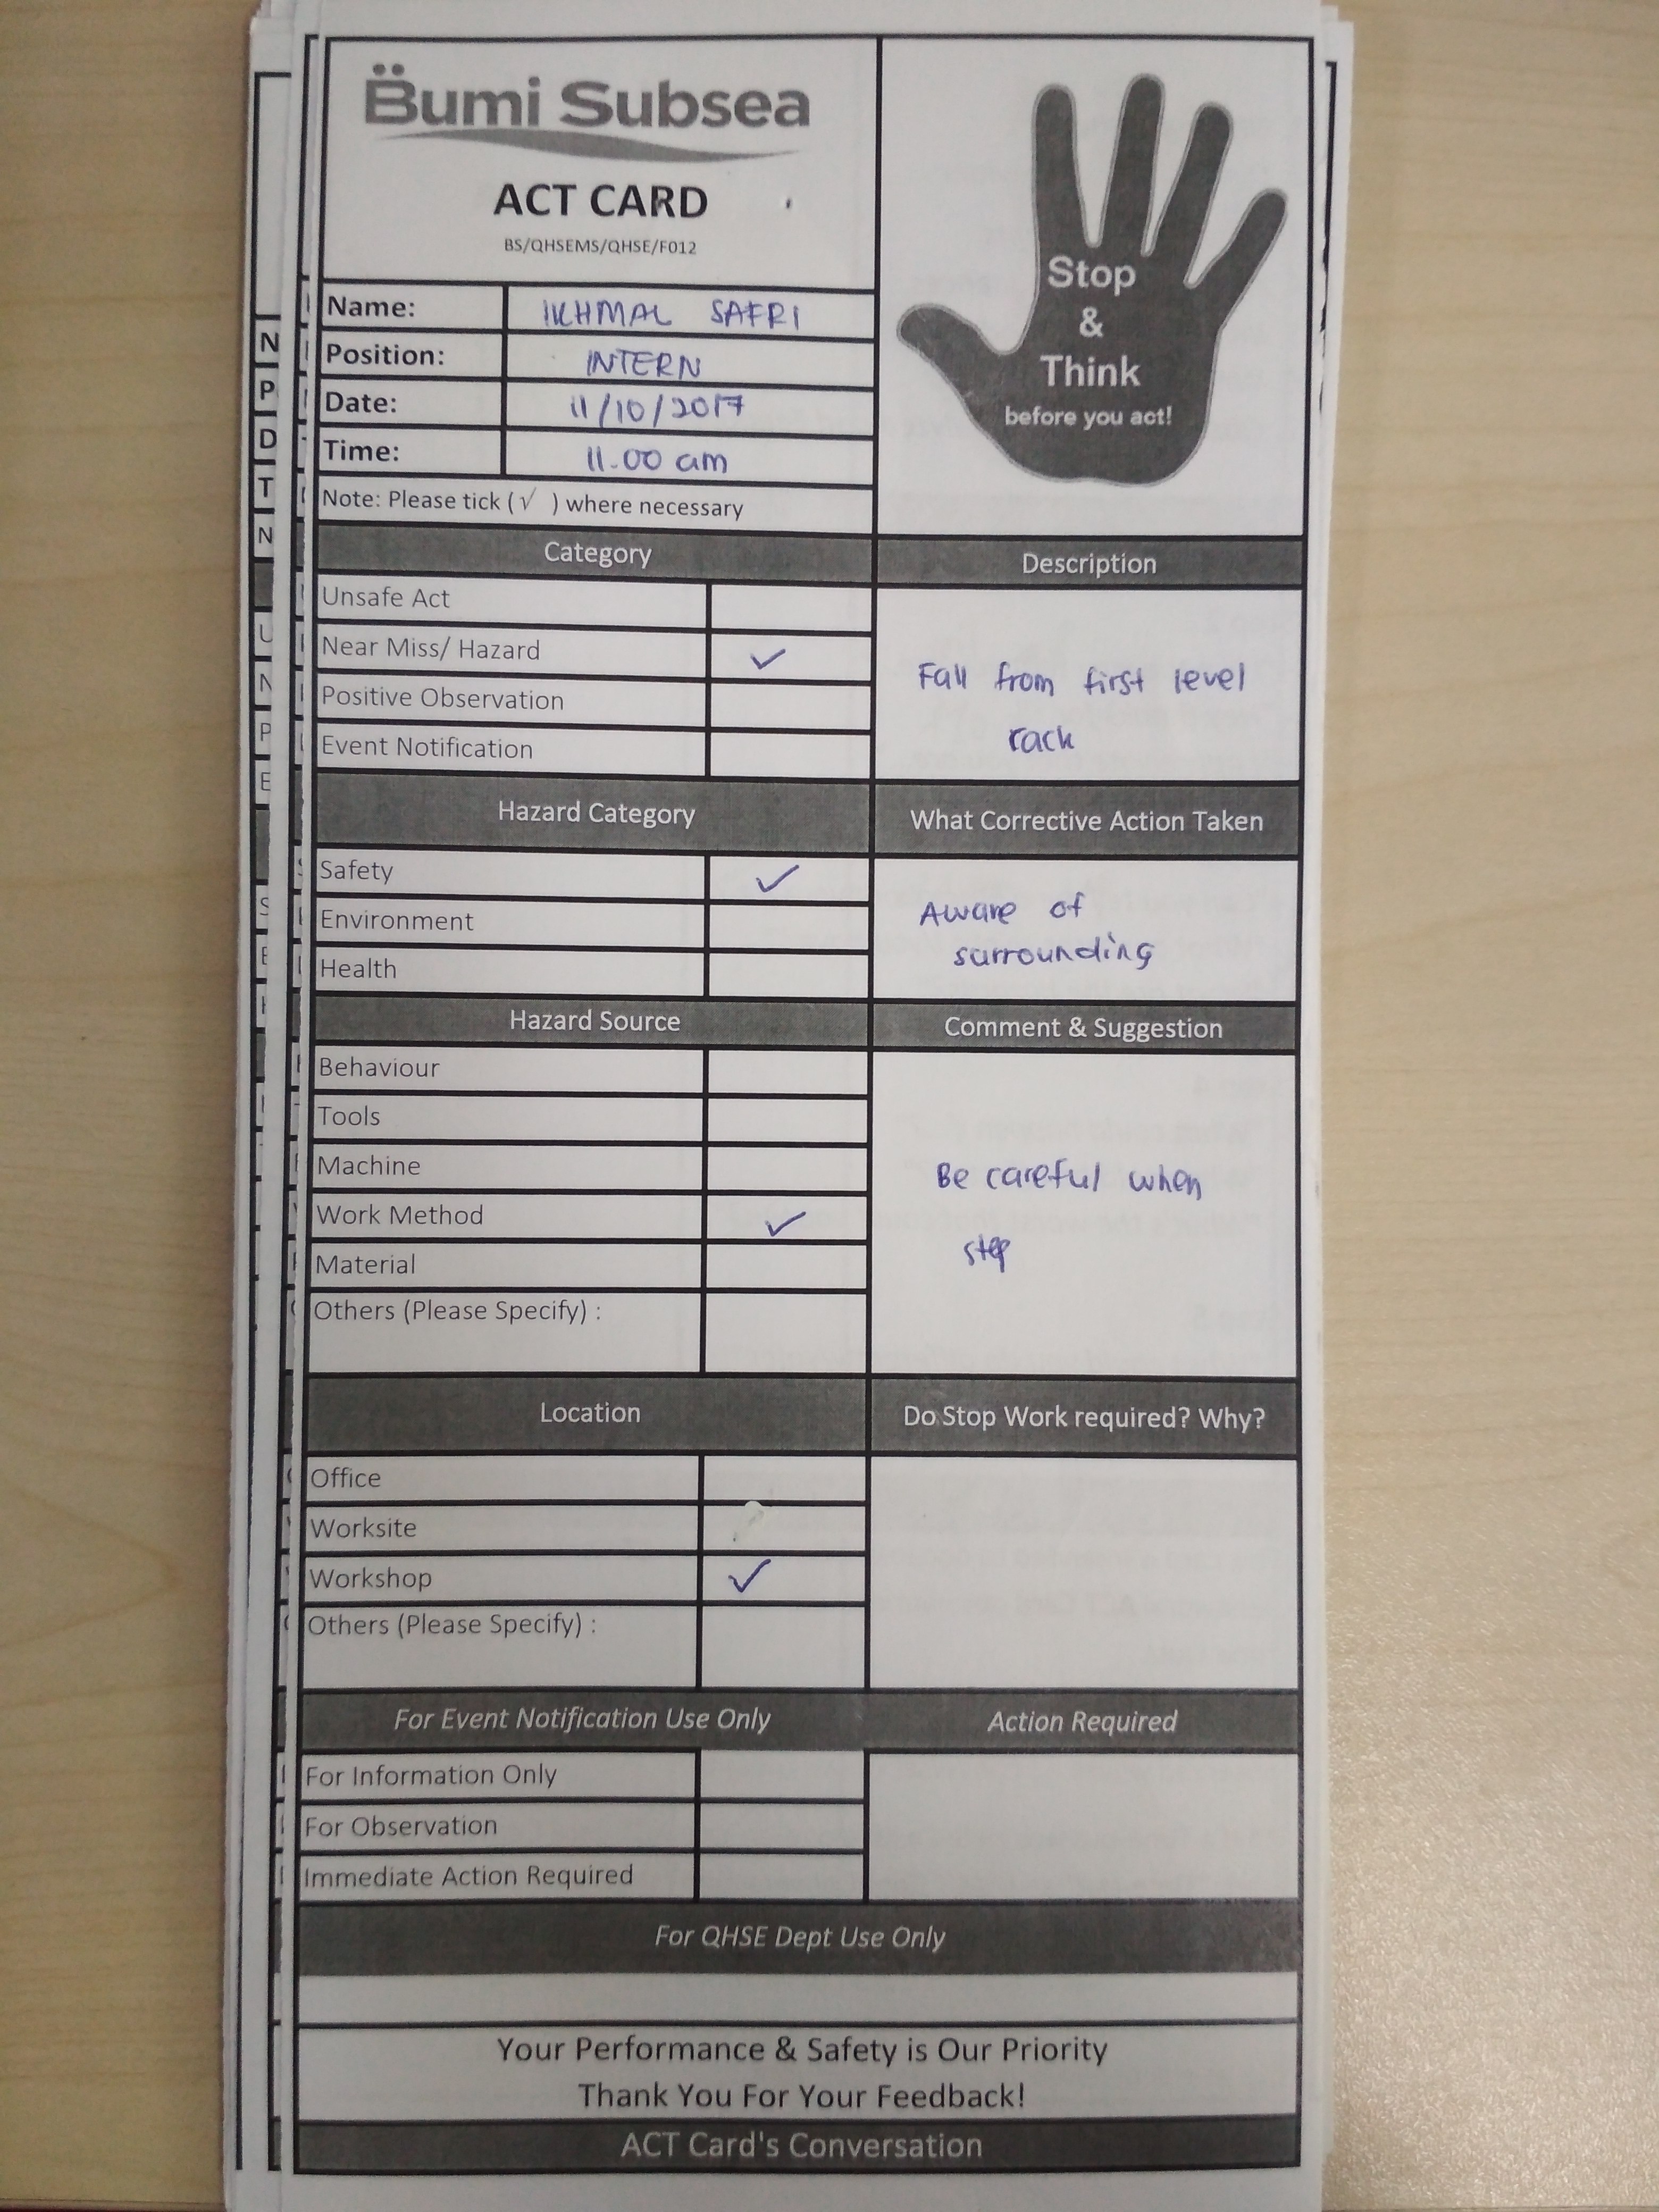 Bumi Subsea
ACT CARD
BS/QHSEMS/QHSE/F012
Stop
&
Think
before you act!
Name: IKHMAL SAFRI
Position: INTERN
Date: 11/10/2017
Time: 11.00 am
Note: Please tick (√ ) where necessary
Category
Unsafe Act
Near Miss/ Hazard ✓
Positive Observation
Event Notification
Description
Fall from first level
rack
Hazard Category
Safety ✓
Environment
Health
What Corrective Action Taken
Aware of
surrounding
Hazard Source
Behaviour
Tools
Machine
Work Method ✓
Material
Others (Please Specify) :
Comment & Suggestion
Be careful when
step
Location
Office
Worksite
Workshop ✓
Others (Please Specify) :
Do Stop Work required? Why?
For Event Notification Use Only
For Information Only
For Observation
Immediate Action Required
Action Required
For QHSE Dept Use Only
Your Performance & Safety is Our Priority
Thank You For Your Feedback!
ACT Card's Conversation